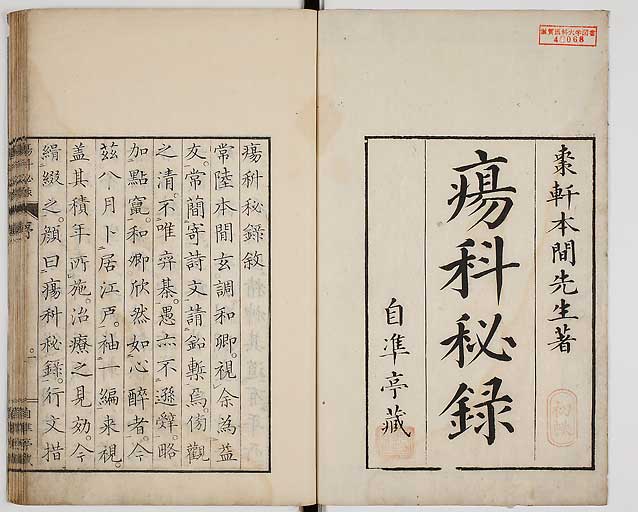 滋賀医科大学図書
46068
棗軒本間先生著
瘍科秘録
自準亭藏
瘍科秘録敘
常陸本間玄調和卿。視余為益
友。常簡寄詩文請鉛槧焉。傍觀
之清。不唯弈棊。愚亦不遜辭。略
加點竄。和卿欣然如心醉者。今
茲八月卜居江戸。袖一編来視。
盖其積年所施。治療之見効。今
緝綴之。顏曰瘍科秘錄。行文措
瘍科秘録
序
一
自準亭藏